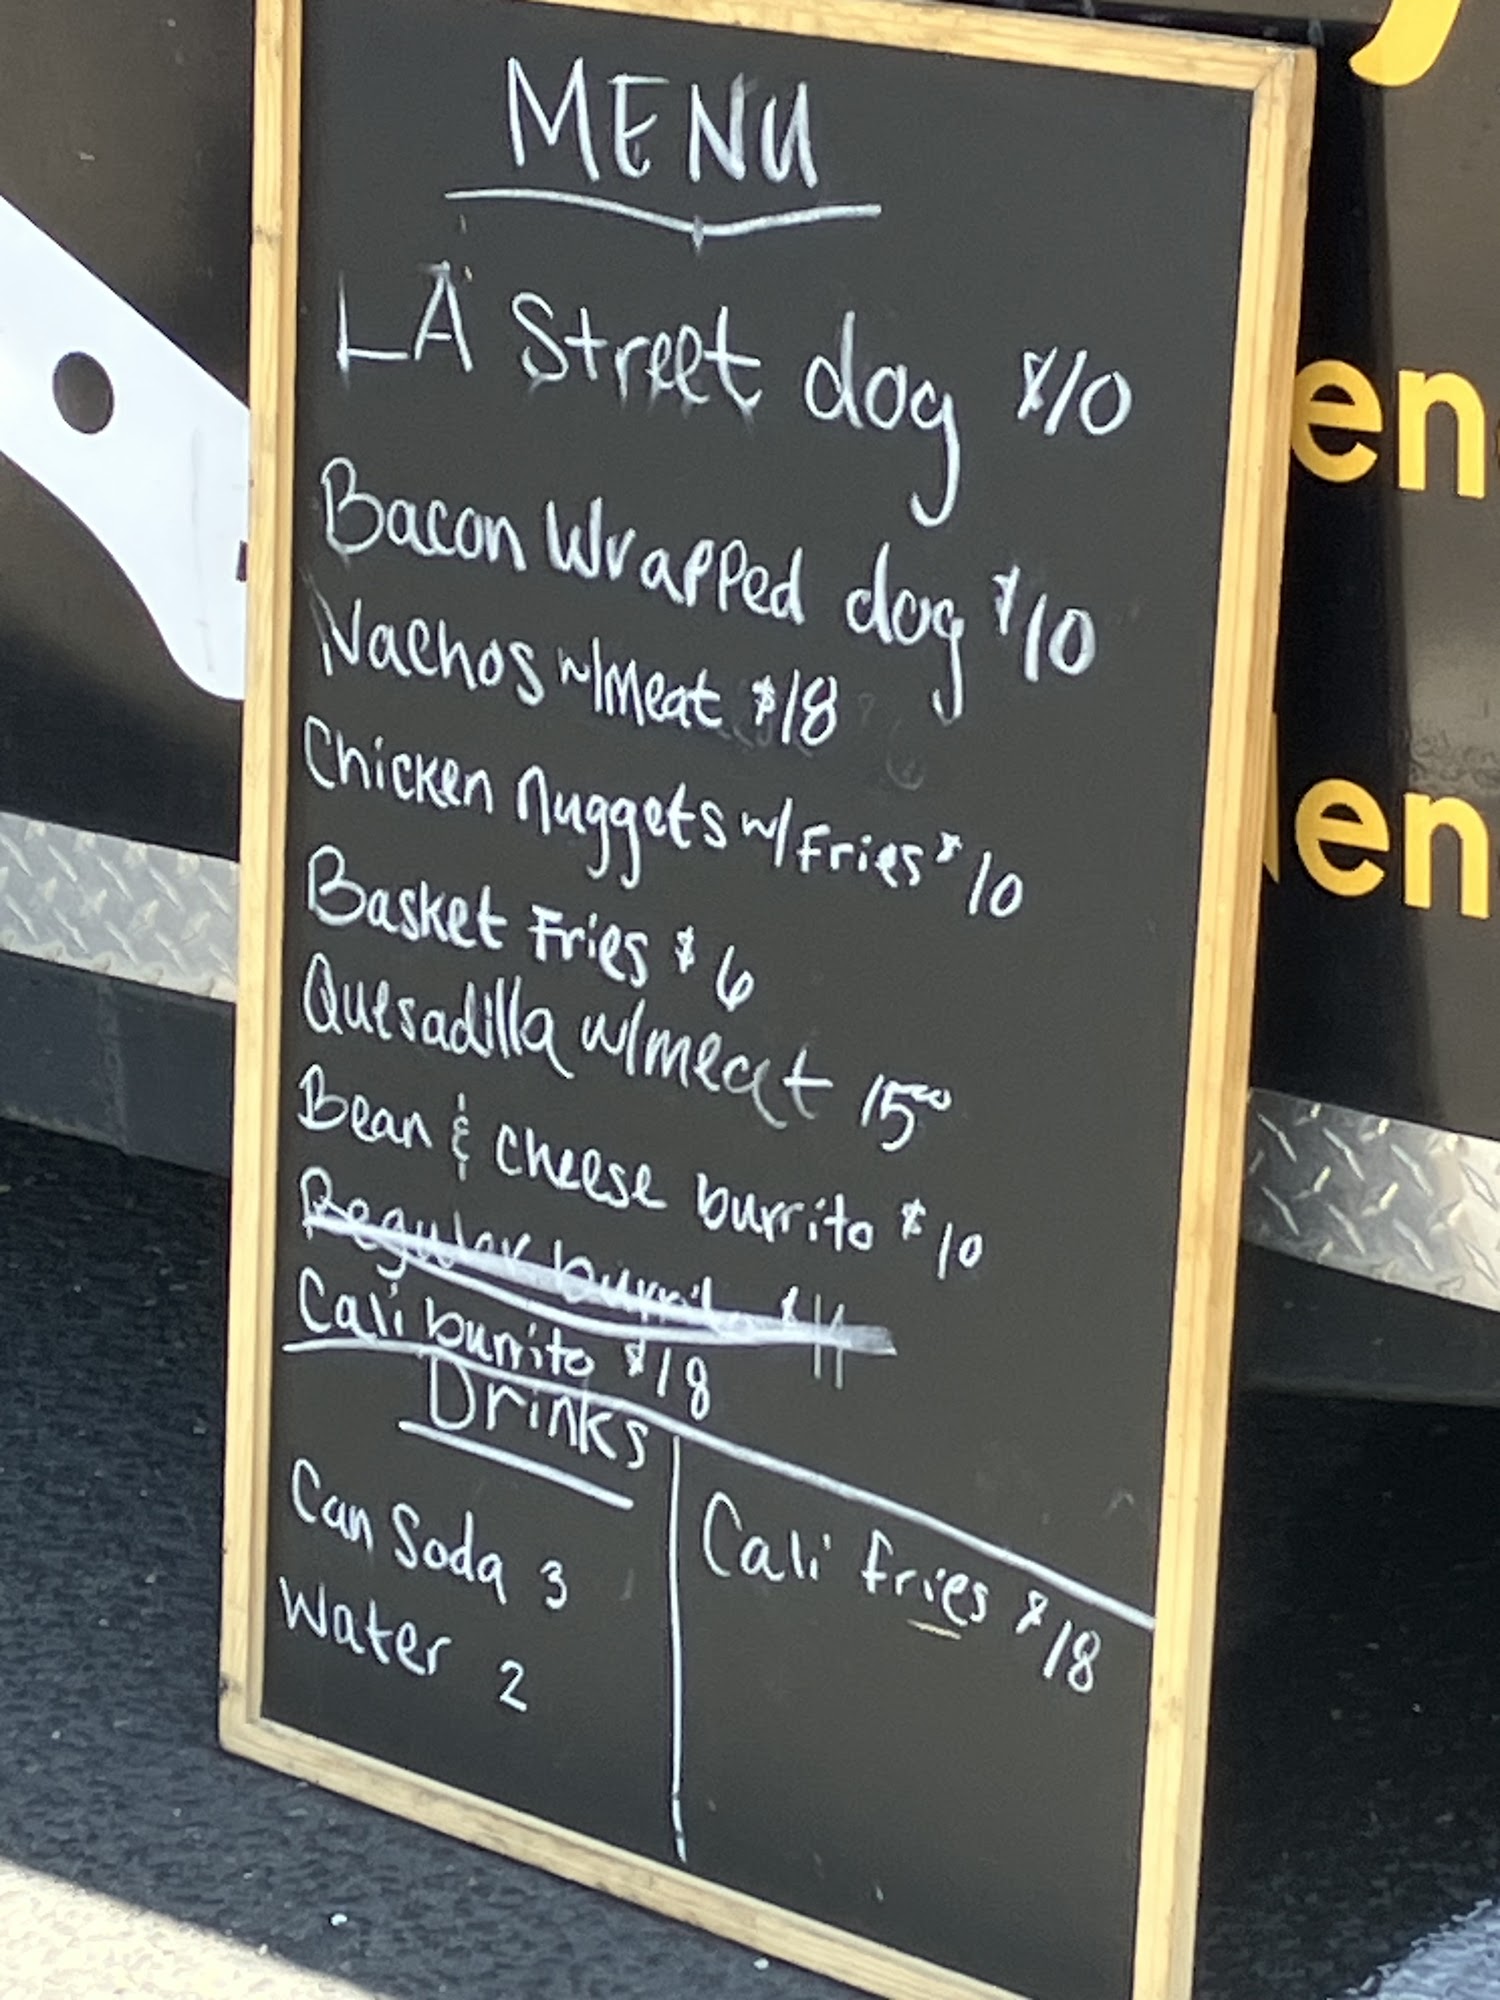 MENU
LA Street dog $10
Bacon Wrapped dog $10
Nachos w/meat $18
Chicken nuggets w/Fries $10
Basket Fries $6
Quesadilla w/meat 15⁰⁰
Bean & cheese burrito $10
Regular burrito $11
Cali burrito $18
Drinks
Can Soda 3
Water 2
Cali fries $18
en
en